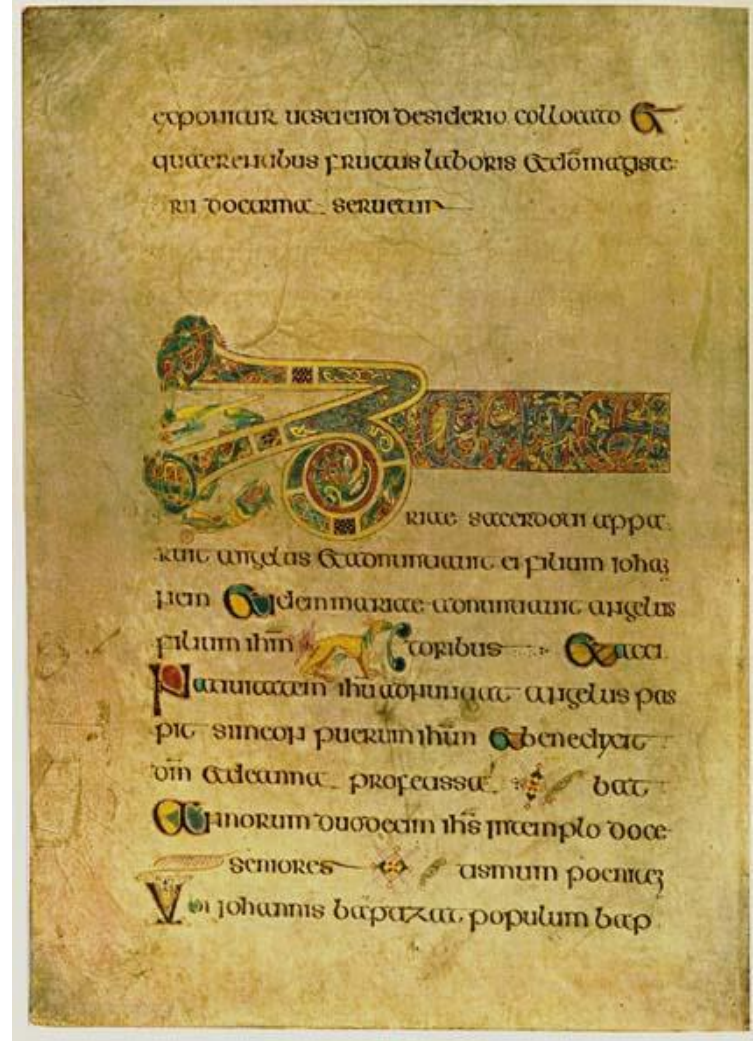 exponitur utsciendi desiderio collocato Et
quaerentibus fructus laboris Et dō magiste
rii doctrina seruetur
Zacha
riae sacerdoti appa
ruit angelus et adnuntiauit ei filium ioha
nem Et idem mariae adnuntiauit angelus
filium ihm̄ toribus Et acci
Natiuitatem ihu adnuntiat angelus pas
pit simeon puerum ihm̄ Et benedixit
dm̄ et deanna profetissa bat
Annorum duodecim ihs̄ intemplo doce
seniores tismum poeniten
Ubi iohannis baptizat populum bap